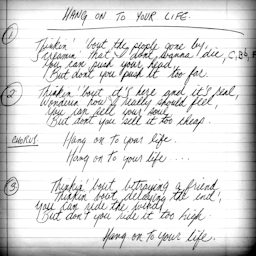 HANG ON TO YOUR LIFE.
1
Thinkin' 'bout the people gone by,
Screamin' that I don't wanna die,
You can push your head
But don't you push it too far.
2
Thinkin' 'bout it's here and it's real,
Wonderin how I really should feel,
You can sell your soul
But don't you sell it too cheap.
CHORUS
Hang on to your life.
Hang on to your life ....
3
Thinkin' bout betraying a friend
Thinkin bout delaying the end,
You can ride the wind
But don't you ride it too high.
Hang on to your life.